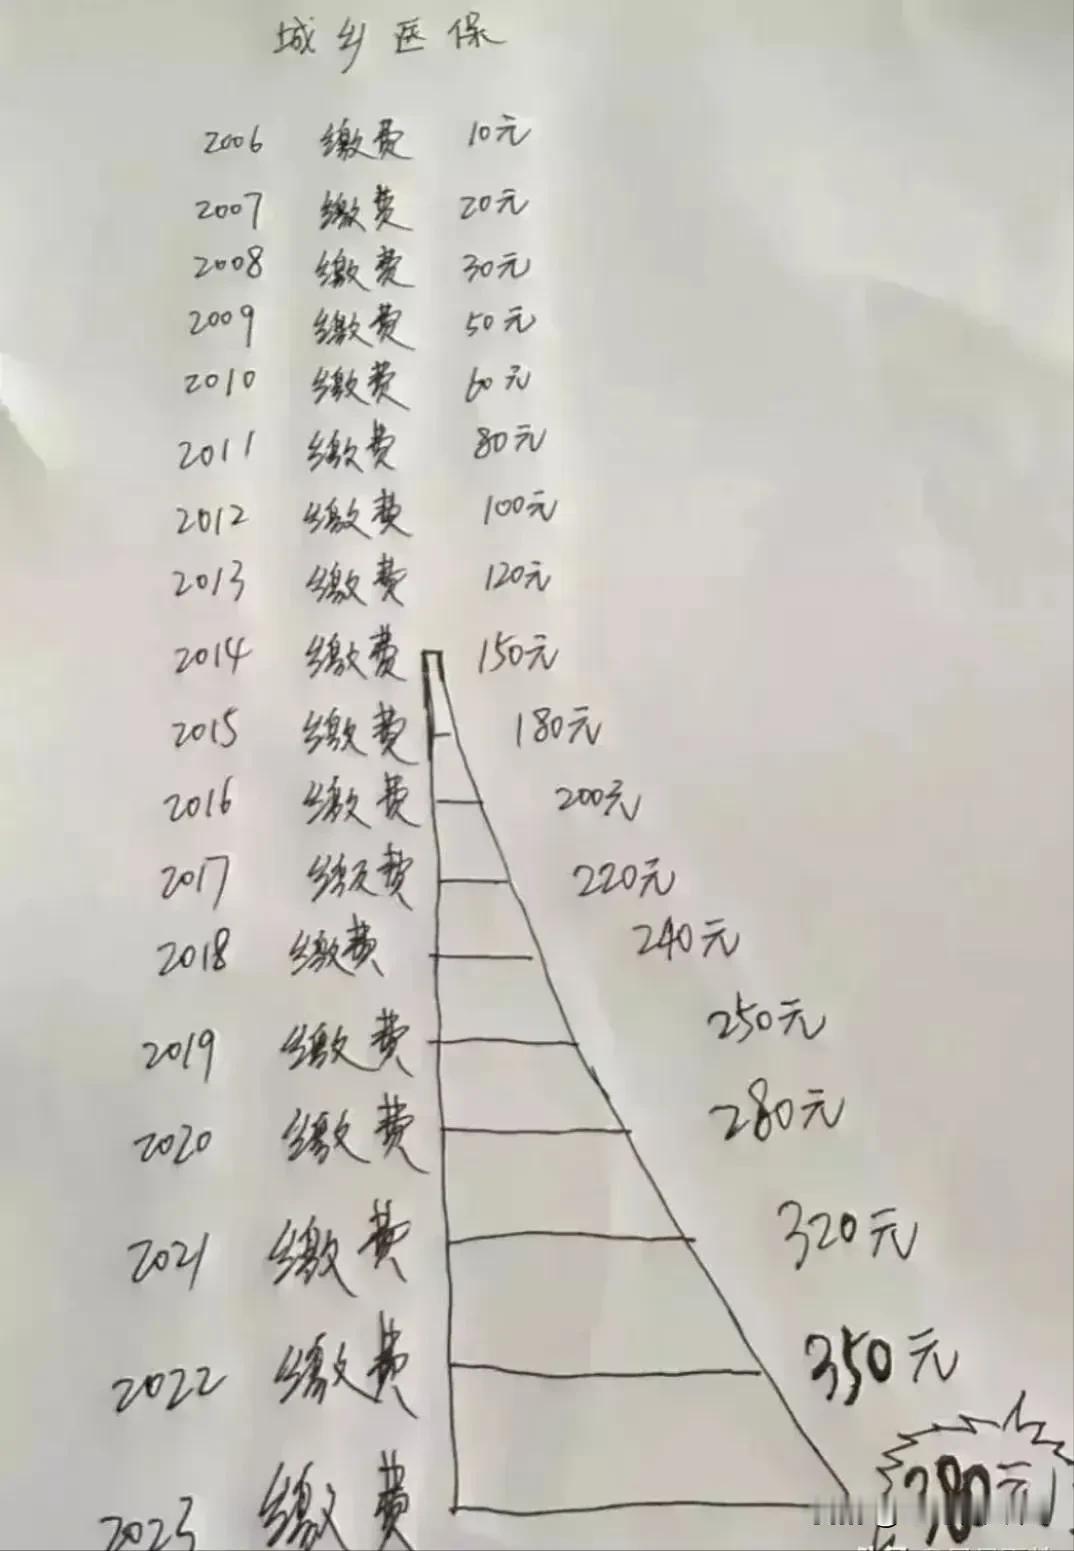 城乡医保
2006 缴费 10元
2007 缴费 20元
2008 缴费 30元
2009 缴费 50元
2010 缴费 60元
2011 缴费 80元
2012 缴费 100元
2013 缴费 120元
2014 缴费 150元
2015 缴费 180元
2016 缴费 200元
2017 缴费 220元
2018 缴费 240元
2019 缴费 250元
2020 缴费 280元
2021 缴费 320元
2022 缴费 350元
2023 缴费 380元